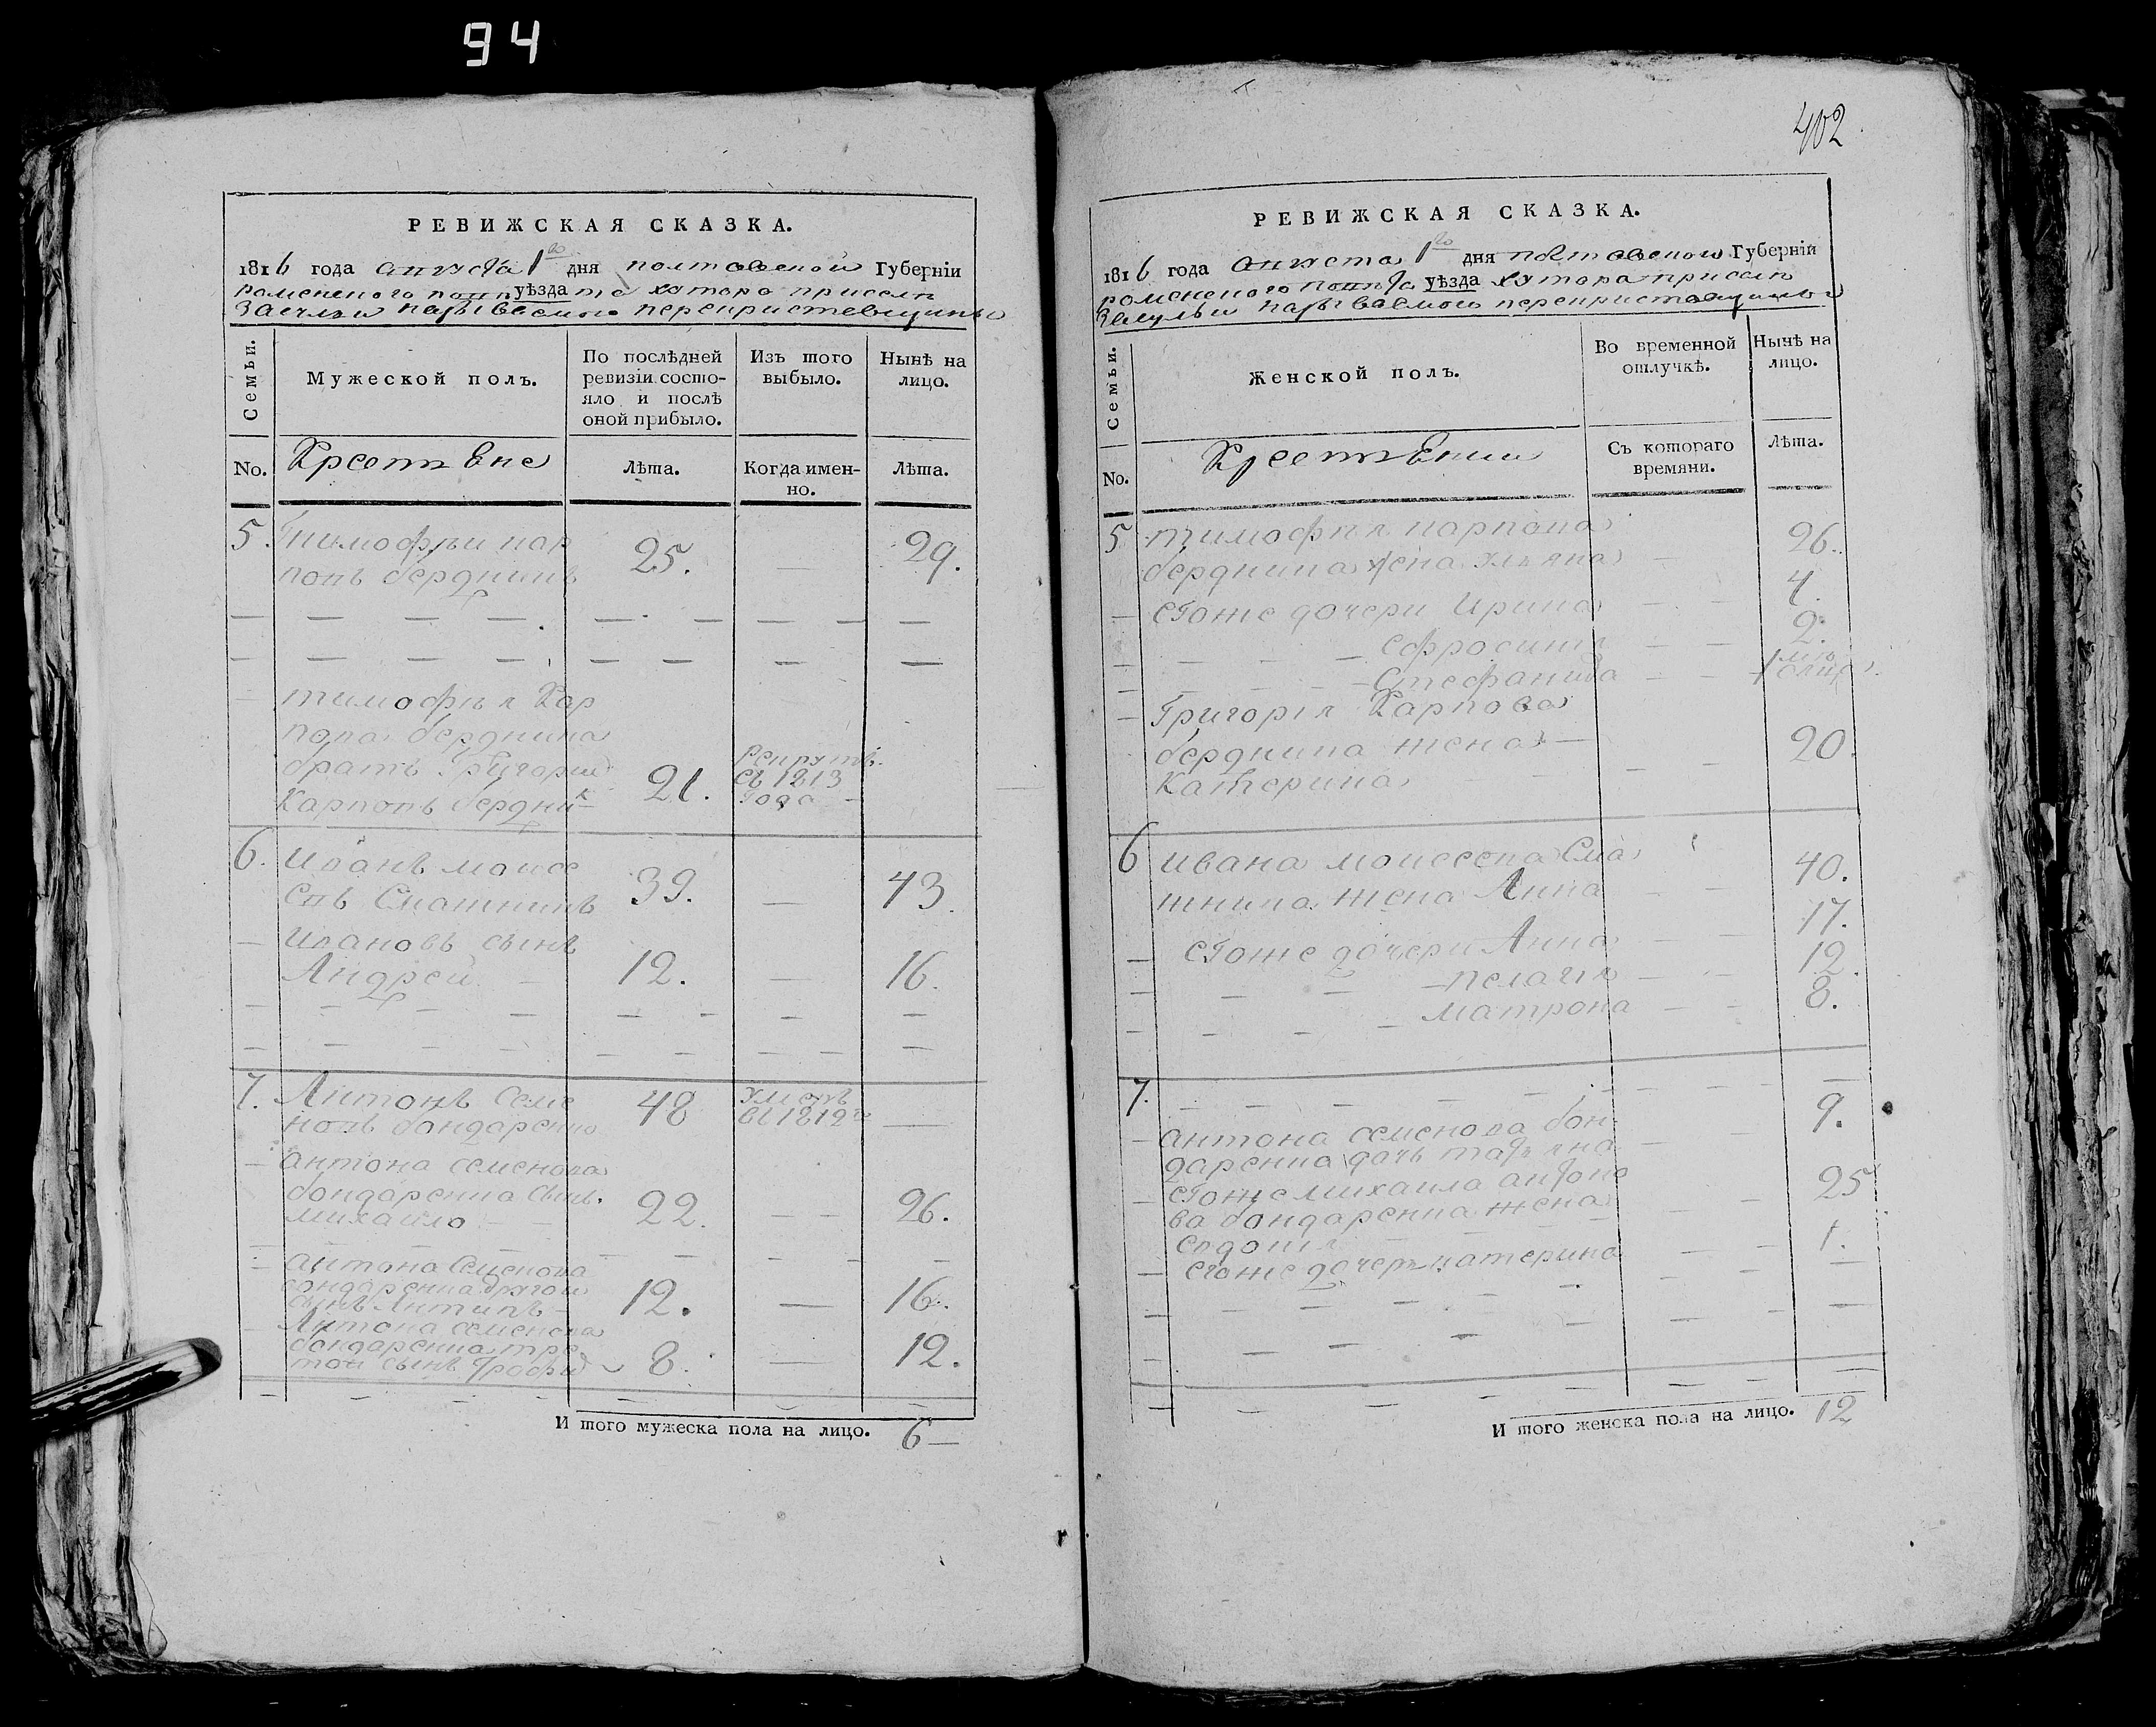 94
РЕВИЖСКАЯ СКАЗКА.
1816 года августа 1го дня полтавской Губерніи
роменского уѣзда хутора присел
называемого
Семьи.
Мужеской полъ.
По послѣдней ревизіи состояло и послѣ оной прибыло.
Изъ того выбыло.
Нынѣ на лицо.
No.
Крестяне
Лѣта.
Когда именно.
Лѣта.
5. Тимофѣи кар
повъ бердникъ 25. — 29.
тимофѣя Кар
пова бердника
братъ Григорий
Карповъ бердник 21. рекрутъ съ 1813 года —
6. Иванъ моисе
евъ Смажникъ 39. — 43.
Ивановъ сынъ
Андрей 12. — 16.
7. Антонъ Семе
новъ бондаренко 48 умеръ въ 1812 г —
антона семенова
бондаренка сынъ
михайло 22. — — 26.
антона Семенова
бондаренка другой
сынъ Антипъ 12. — 16.
Антона семенова
бондаренка тре
той сынъ трофим 8. — 12.
И того мужеска пола на лицо. 6 —
402
РЕВИЖСКАЯ СКАЗКА.
1816 года августа 1го дня полтавской Губерніи
роменского уѣзда хутора присел
называемого
Семьи.
Женской полъ.
Во временной отлучкѣ.
Нынѣ на лицо.
No.
Крестянки
Съ котораго времяни.
Лѣта.
5 тимофѣя карпова
бердника жена ульяна — 26.
его же дочери Ирина — — 4.
ефросинія — — 2.
Стефанида — — 1
Григорія Карпова
бердника жена —
Катерина — — 20.
6 ивана моисеева Сма
жника жена Анна — — 40.
его же дочери Анна — — 17.
пелагія — — 12.
матрона — — 8.
7.
антона семенова бон
даренка дочь татяна — — 9.
его же михаила антоно
ва бондаренка жена — 25
евдокія
его же дочерь катерина — — 1.
И того женска пола на лицо. 12